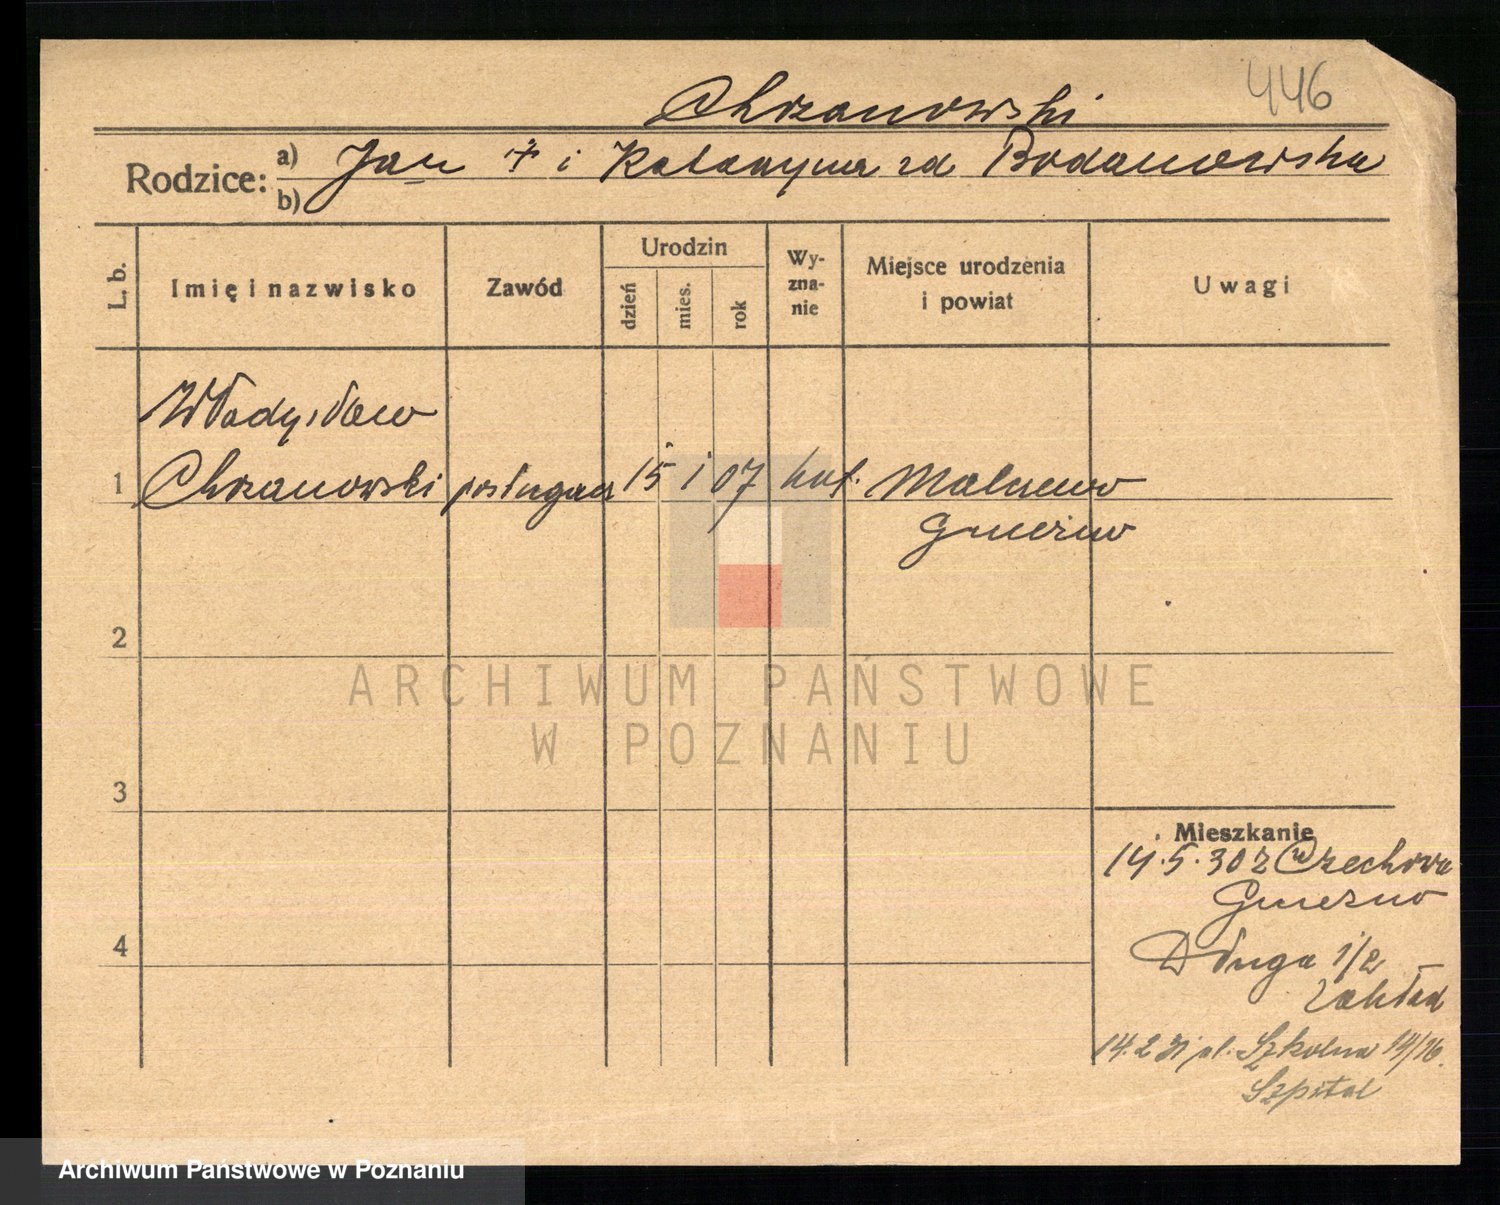 446
Chrzanowski
Rodzice:
a) Jan + i Katarzyna zd Bodanowska
b)
L. b.
Imię i nazwisko
Zawód
Urodzin
dzień
mies.
rok
Wy-
zna-
nie
Miejsce urodzenia
i powiat
Uwagi
Władysław
1 Chrzanowski posługacz 15 1 07 kat.
Gniezno
2
ARCHIWUM PAŃSTWOWE
W POZNANIU
3
Mieszkanie
14.5.30 z Czechowa
Gniezno
4
Długa 1/2
Zakład
14.2 31 ul. Szkolna 14/16.
Szpital
Archiwum Państwowe w Poznaniu